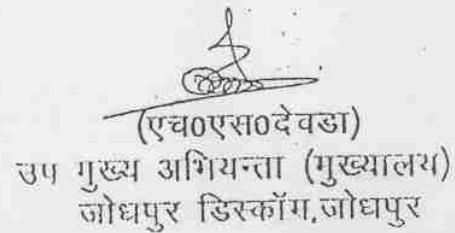 (एच0एस0देवडा)
उप मुख्य अभियन्ता (मुख्यालय)
जोधपुर डिस्कॉम,जोधपुर